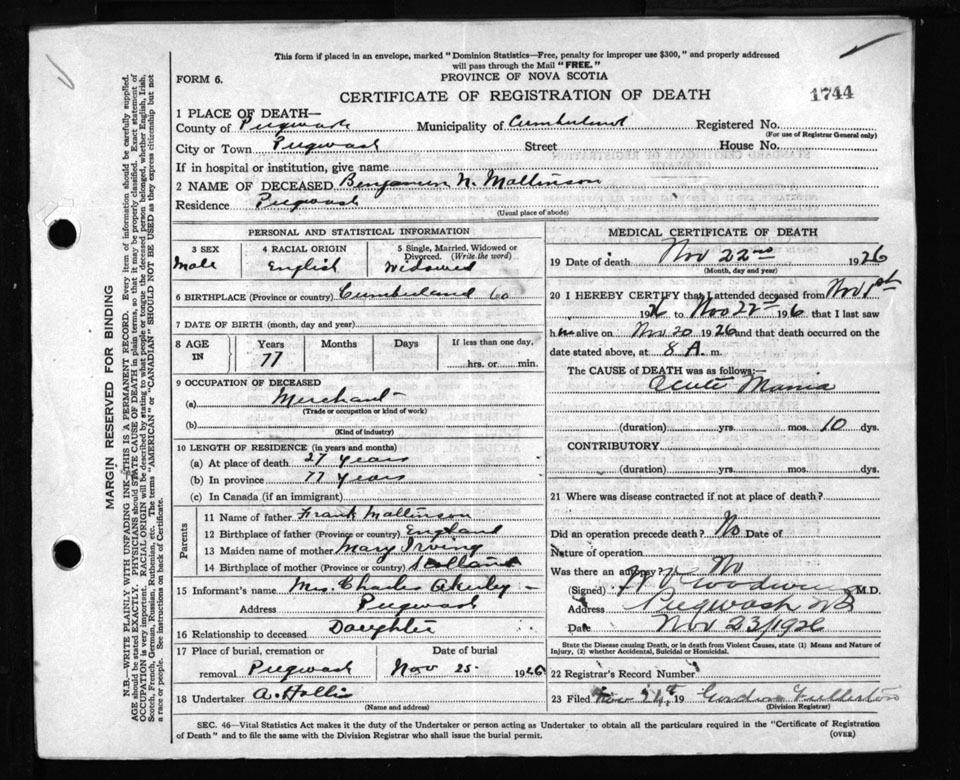 This form if placed in an envelope, marked "Dominion Statistics—Free, penalty for improper use $300," and properly addressed
will pass through the Mail "FREE."
FORM 6.
PROVINCE OF NOVA SCOTIA
CERTIFICATE OF REGISTRATION OF DEATH
1744
1 PLACE OF DEATH—
County of Pugwash Municipality of Cumberland Registered No.
(For use of Registrar General only)
City or Town Pugwash Street House No.
If in hospital or institution, give name
2 NAME OF DECEASED Benjamin N. Mallinson
Residence Pugwash
(Usual place of abode)
PERSONAL AND STATISTICAL INFORMATION
3 SEX 4 RACIAL ORIGIN 5 Single, Married, Widowed or Divorced. (Write the word)
Male English Widowed
6 BIRTHPLACE (Province or country) Cumberland Co
7 DATE OF BIRTH (month, day and year)
8 AGE IN Years Months Days If less than one day,
77 hrs. or min.
9 OCCUPATION OF DECEASED
(a) Merchant
(Trade or occupation or kind of work)
(b)
(Kind of industry)
10 LENGTH OF RESIDENCE (in years and months)
(a) At place of death 27 years
(b) In province 77 years
(c) In Canada (if an immigrant)
Parents
11 Name of father Frank Mallinson
12 Birthplace of father (Province or country) England
13 Maiden name of mother Mary Irving
14 Birthplace of mother (Province or country) Scotland
15 Informant's name Mrs. Charles Akerley
Address Pugwash
16 Relationship to deceased Daughter
17 Place of burial, cremation or removal Pugwash
Date of burial
Nov 25 1926
18 Undertaker A. Hollis
(Name and address)
MEDICAL CERTIFICATE OF DEATH
19 Date of death Nov 22nd 1926
(Month, day and year)
20 I HEREBY CERTIFY that I attended deceased from Nov 1st
1926 to Nov 22nd 1926 that I last saw
him alive on Nov 20 1926 and that death occurred on
date stated above, at 8 A. m.
The CAUSE of DEATH was as follows:—
Acute Mania
(duration) yrs. mos. 10 dys.
CONTRIBUTORY
(duration) yrs. mos. dys.
21 Where was disease contracted if not at place of death?
Did an operation precede death? No Date of
Nature of operation
Was there an autopsy? No
(Signed) M.D.
Address Pugwash NS
Date Nov 23/1926
State the Disease causing Death, or in death from Violent Causes, state (1) Means and Nature of
Injury, (2) whether Accidental, Suicidal or Homicidal.
22 Registrar's Record Number
23 Filed Nov 19 Gordon Fullerton
(Division Registrar)
SEC. 46—Vital Statistics Act makes it the duty of the Undertaker or person acting as Undertaker to obtain all the particulars required in the "Certificate of Registration
of Death" and to file the same with the Division Registrar who shall issue the burial permit.
(OVER)
MARGIN RESERVED FOR BINDING
N.B.—WRITE PLAINLY WITH UNFADING INK—THIS IS A PERMANENT RECORD. Every item of information should be carefully supplied.
AGE should be stated EXACTLY. PHYSICIANS should STATE CAUSE OF DEATH in plain terms, so that it may be properly classified. Exact statement of
OCCUPATION is very important. RACIAL ORIGIN will be described by stating to what people or tongue the deceased person belonged, whether English, Irish,
Scotch, French, German, Russian, Ruthenian, etc. The terms "AMERICAN" or "CANADIAN" SHOULD NOT BE USED as they express citizenship but not
a race or people. See instructions on back of Certificate.